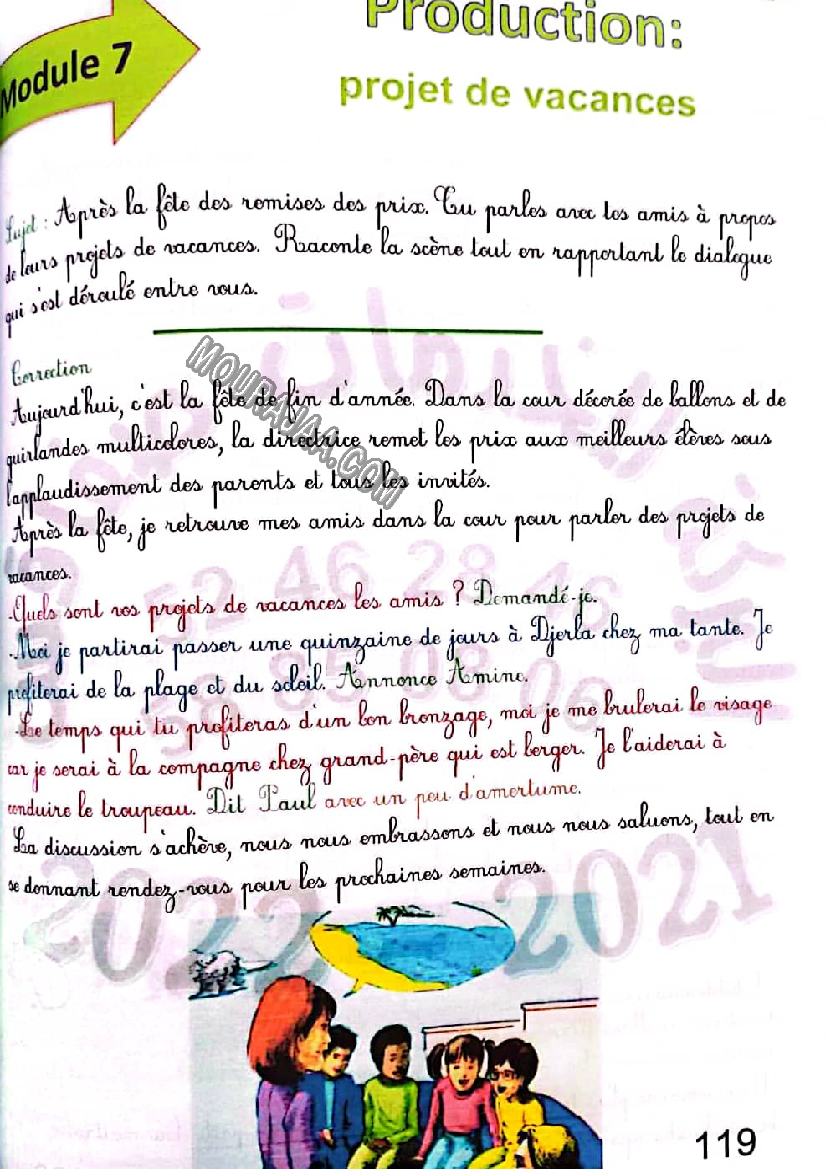 Module 7
Production:
projet de vacances
Sujet : Après la fête des remises des prix. Tu parles avec tes amis à propos
de leurs projets de vacances. Raconte la scène tout en rapportant le dialogue
qui s'est déroulé entre vous.
Correction
Aujourd'hui, c'est la fête de fin d'année. Dans la cour décorée de ballons et de
guirlandes multicolores, la directrice remet les prix aux meilleurs élèves sous
l'applaudissement des parents et tous les invités.
Après la fête, je retrouve mes amis dans la cour pour parler des projets de
vacances.
-Quels sont vos projets de vacances les amis ? Demandé-je.
-Moi je partirai passer une quinzaine de jours à Djerba chez ma tante. Je
profiterai de la plage et du soleil. Annonce Amine.
-Le temps qui tu profiteras d'un bon bronzage, moi je me brulerai le visage
car je serai à la compagne chez grand-père qui est berger. Je l'aiderai à
conduire le troupeau. Dit Paul avec un peu d'amertume.
La discussion s'achève, nous nous embrassons et nous nous saluons, tout en
se donnant rendez-vous pour les prochaines semaines.
MOURAJAA.COM
52 46 28 46
58 85 08 06
2022 2021
119